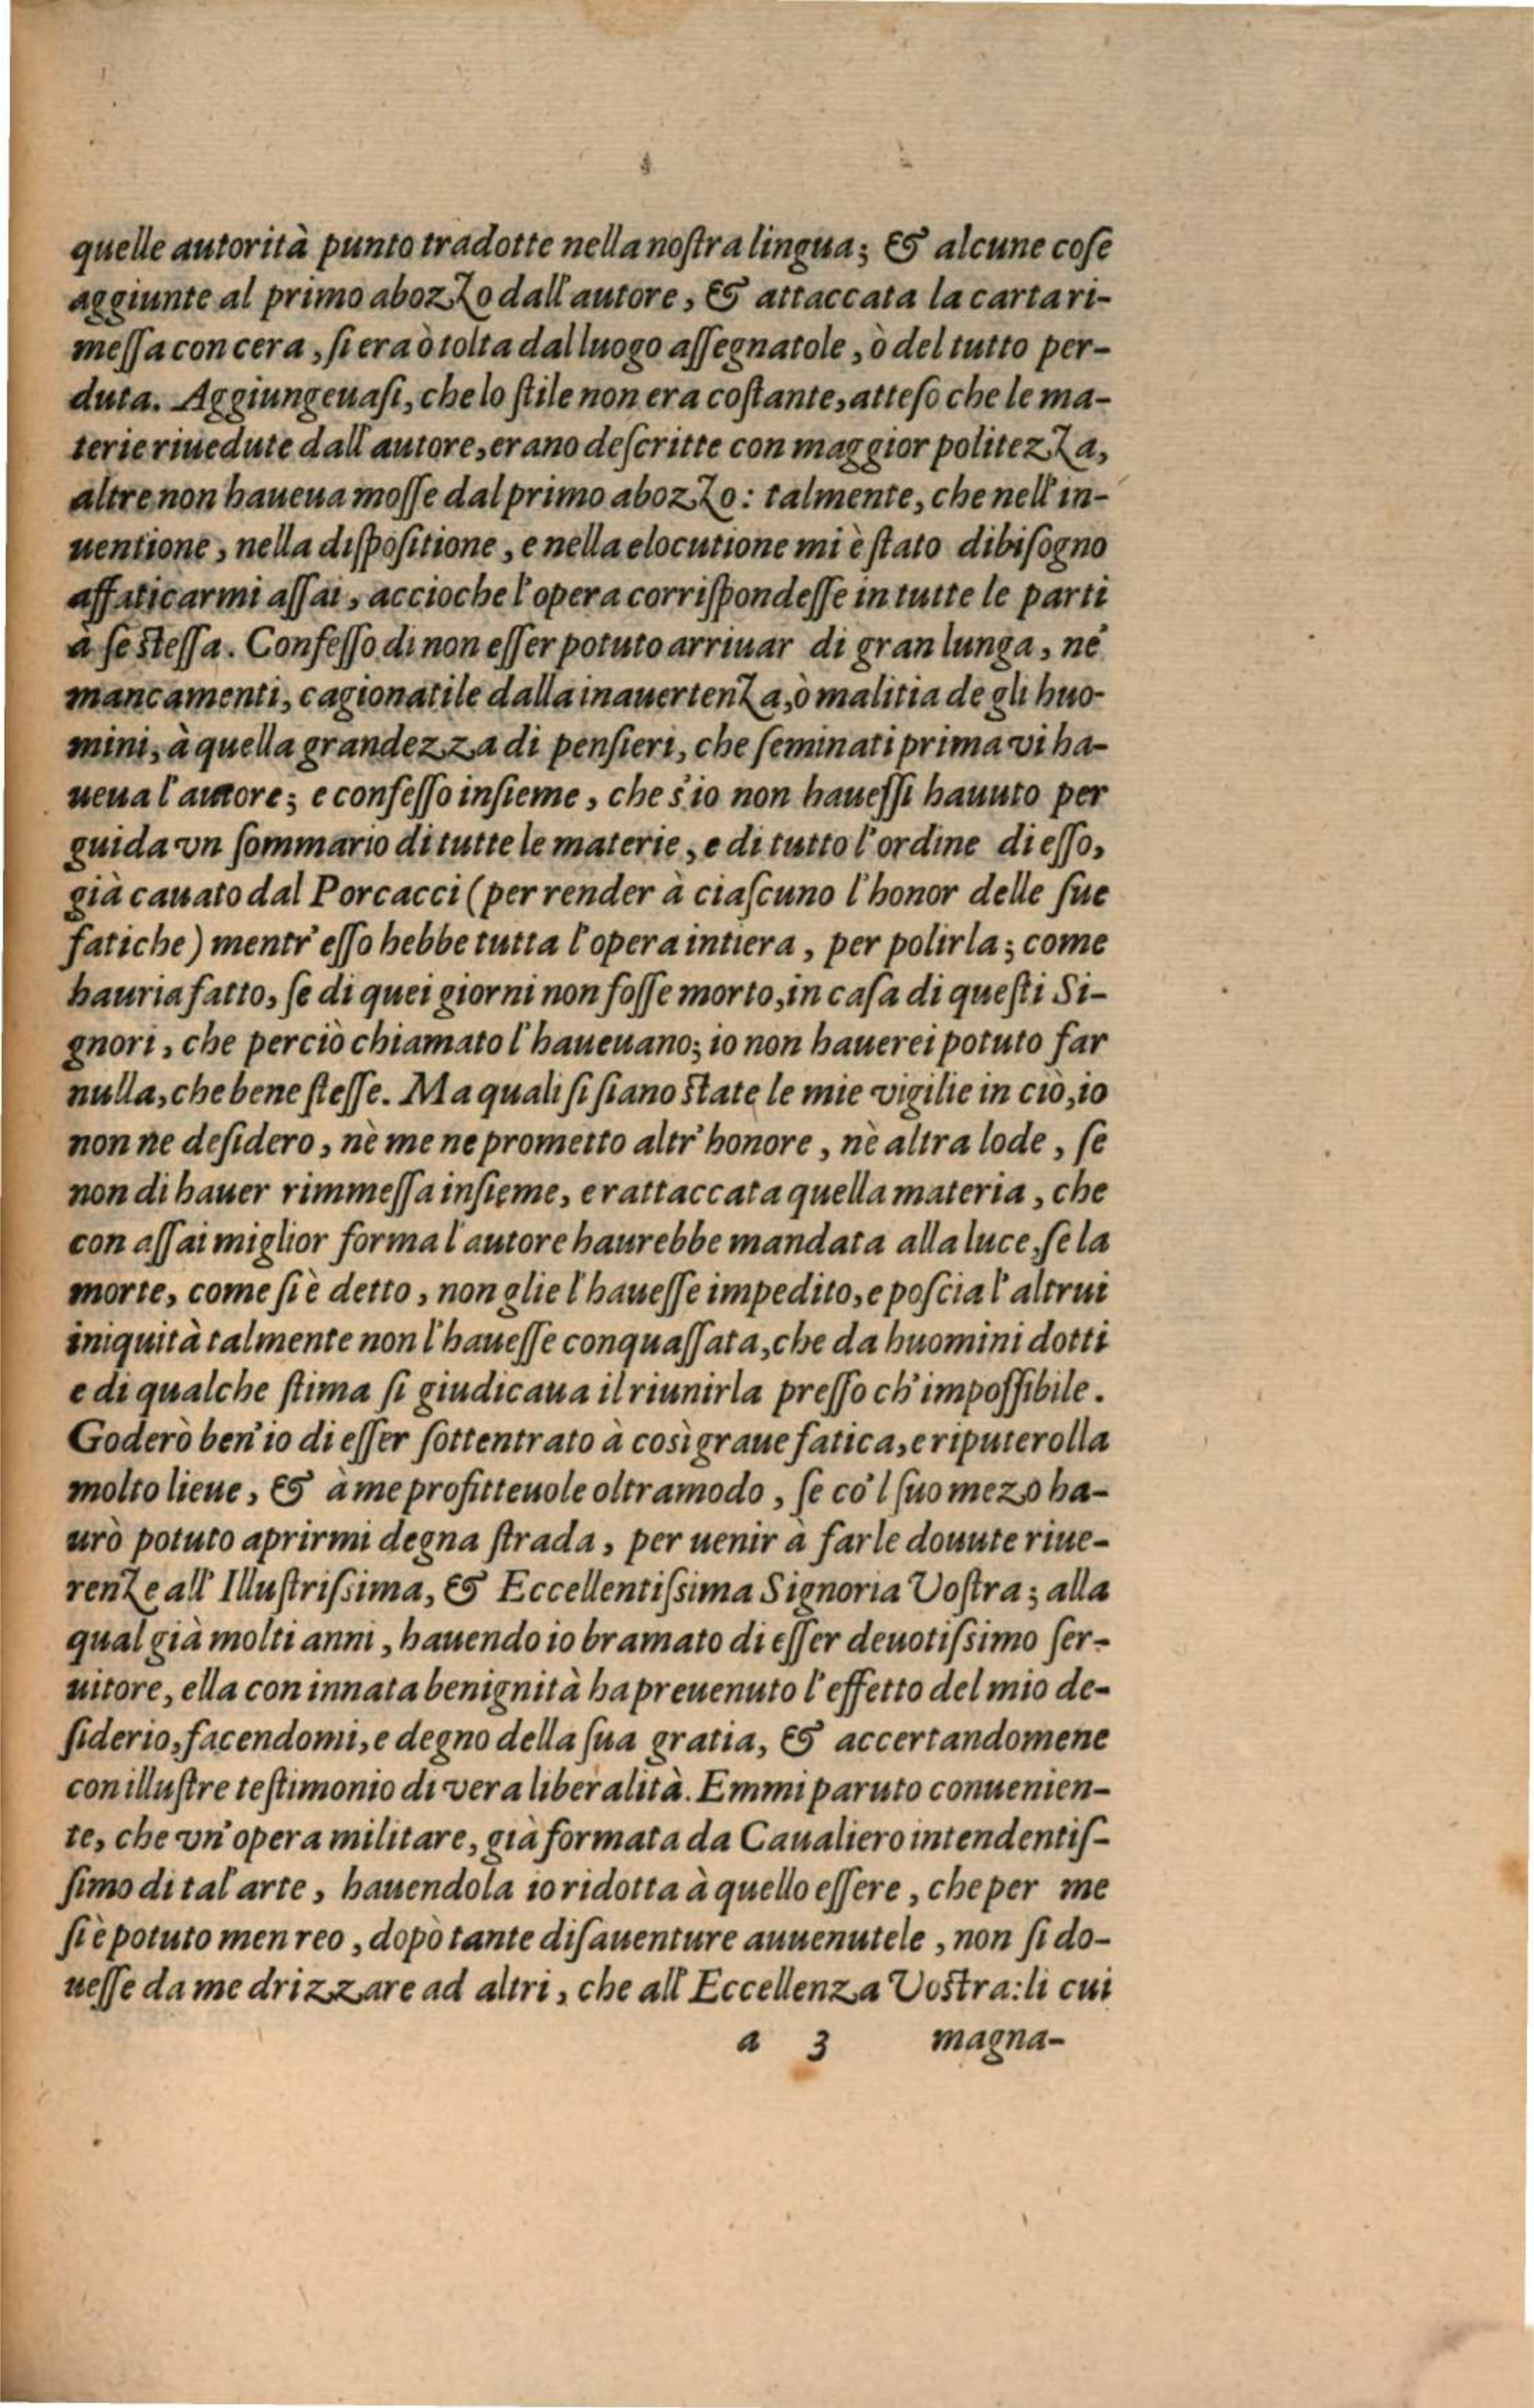 quelle autorità punto tradotte nella nostra lingua; & alcune cose
aggiunte al primo abozzo dall'autore, & attaccata la carta ri-
messa con cera, si era ò tolta dal luogo assegnatole, ò del tutto per-
duta. Aggiungeuasi, che lo stile non era costante, atteso che le ma-
terie riuedute dall'autore, erano descritte con maggior politezza,
altre non haueua mosse dal primo abozzo: talmente, che nell'in-
uentione, nella dispositione, e nella elocutione mi è stato dibisogno
affaticarmi assai, accioche l'opera corrispondesse in tutte le parti
à se stessa. Confesso di non esser potuto arriuar di gran lunga, ne'
mancamenti, cagionatile dalla inauertenza, ò malitia de gli huo-
mini, à quella grandezza di pensieri, che seminati prima vi ha-
ueua l'autore; e confesso insieme, che s'io non hauessi hauuto per
guida vn sommario di tutte le materie, e di tutto l'ordine di esso,
già cauato dal Porcacci (per render à ciascuno l'honor delle sue
fatiche) mentr'esso hebbe tutta l'opera intiera, per polirla; come
hauria fatto, se di quei giorni non fosse morto, in casa di questi Si-
gnori, che perciò chiamato l'haueuano; io non hauerei potuto far
nulla, che bene stesse. Ma quali si siano state le mie vigilie in ciò, io
non ne desidero, nè me ne prometto altr'honore, nè altra lode, se
non di hauer rimmessa insieme, e rattaccata quella materia, che
con assai miglior forma l'autore haurebbe mandata alla luce, se la
morte, come si è detto, non glie l'hauesse impedito, e poscia l'altrui
iniquità talmente non l'hauesse conquassata, che da huomini dotti
e di qualche stima si giudicaua il riunirla presso ch'impossibile.
Goderò ben'io di esser sottentrato à così graue fatica, e riputerolla
molto lieue, & à me profitteuole oltramodo, se co'l suo mezo ha-
urò potuto aprirmi degna strada, per uenir à farle douute riue-
renze all'Illustrissima, & Eccellentissima Signoria Vostra; alla
qual già molti anni, hauendo io bramato di esser deuotissimo ser-
uitore, ella con innata benignità ha preuenuto l'effetto del mio de-
siderio, facendomi, e degno della sua gratia, & accertandomene
con illustre testimonio di vera liberalità. Emmi paruto conuenien-
te, che vn'opera militare, già formata da Caualiero intendentis-
simo di tal'arte, hauendola io ridotta à quello essere, che per me
si è potuto men reo, dopò tante disauenture auuenutele, non si do-
uesse da me drizzare ad altri, che all'Eccellenza Vostra: li cui
a 3 magna-